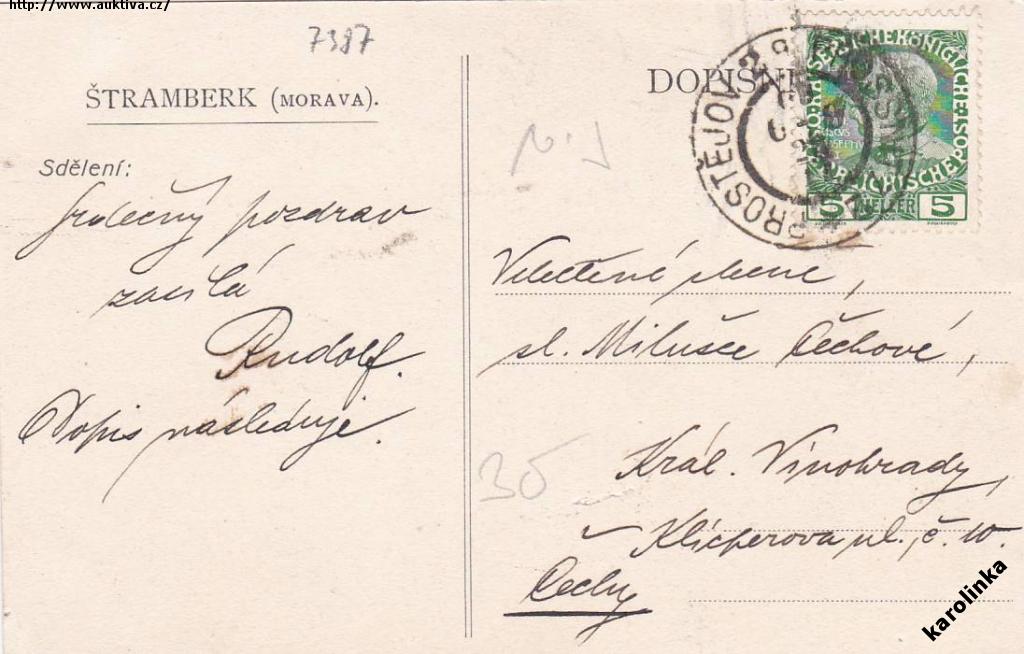 http://www.auktiva.cz/
7387
ŠTRAMBERK (MORAVA).
Sdělení:
Srdečný pozdrav
zasílá
Rudolf.
Dopis následuje.
30
DOPISNI
PROSTĚJOV 2
KAISERLICHE KÖNIGLICHE
POST
ÖSTERREICHISCHE
5 HELLER 5
Velectěné slečně,
sl. Milušce Čechové,
Král. Vinohrady,
Klicperova ul., č. 10.
Čechy
karolinka